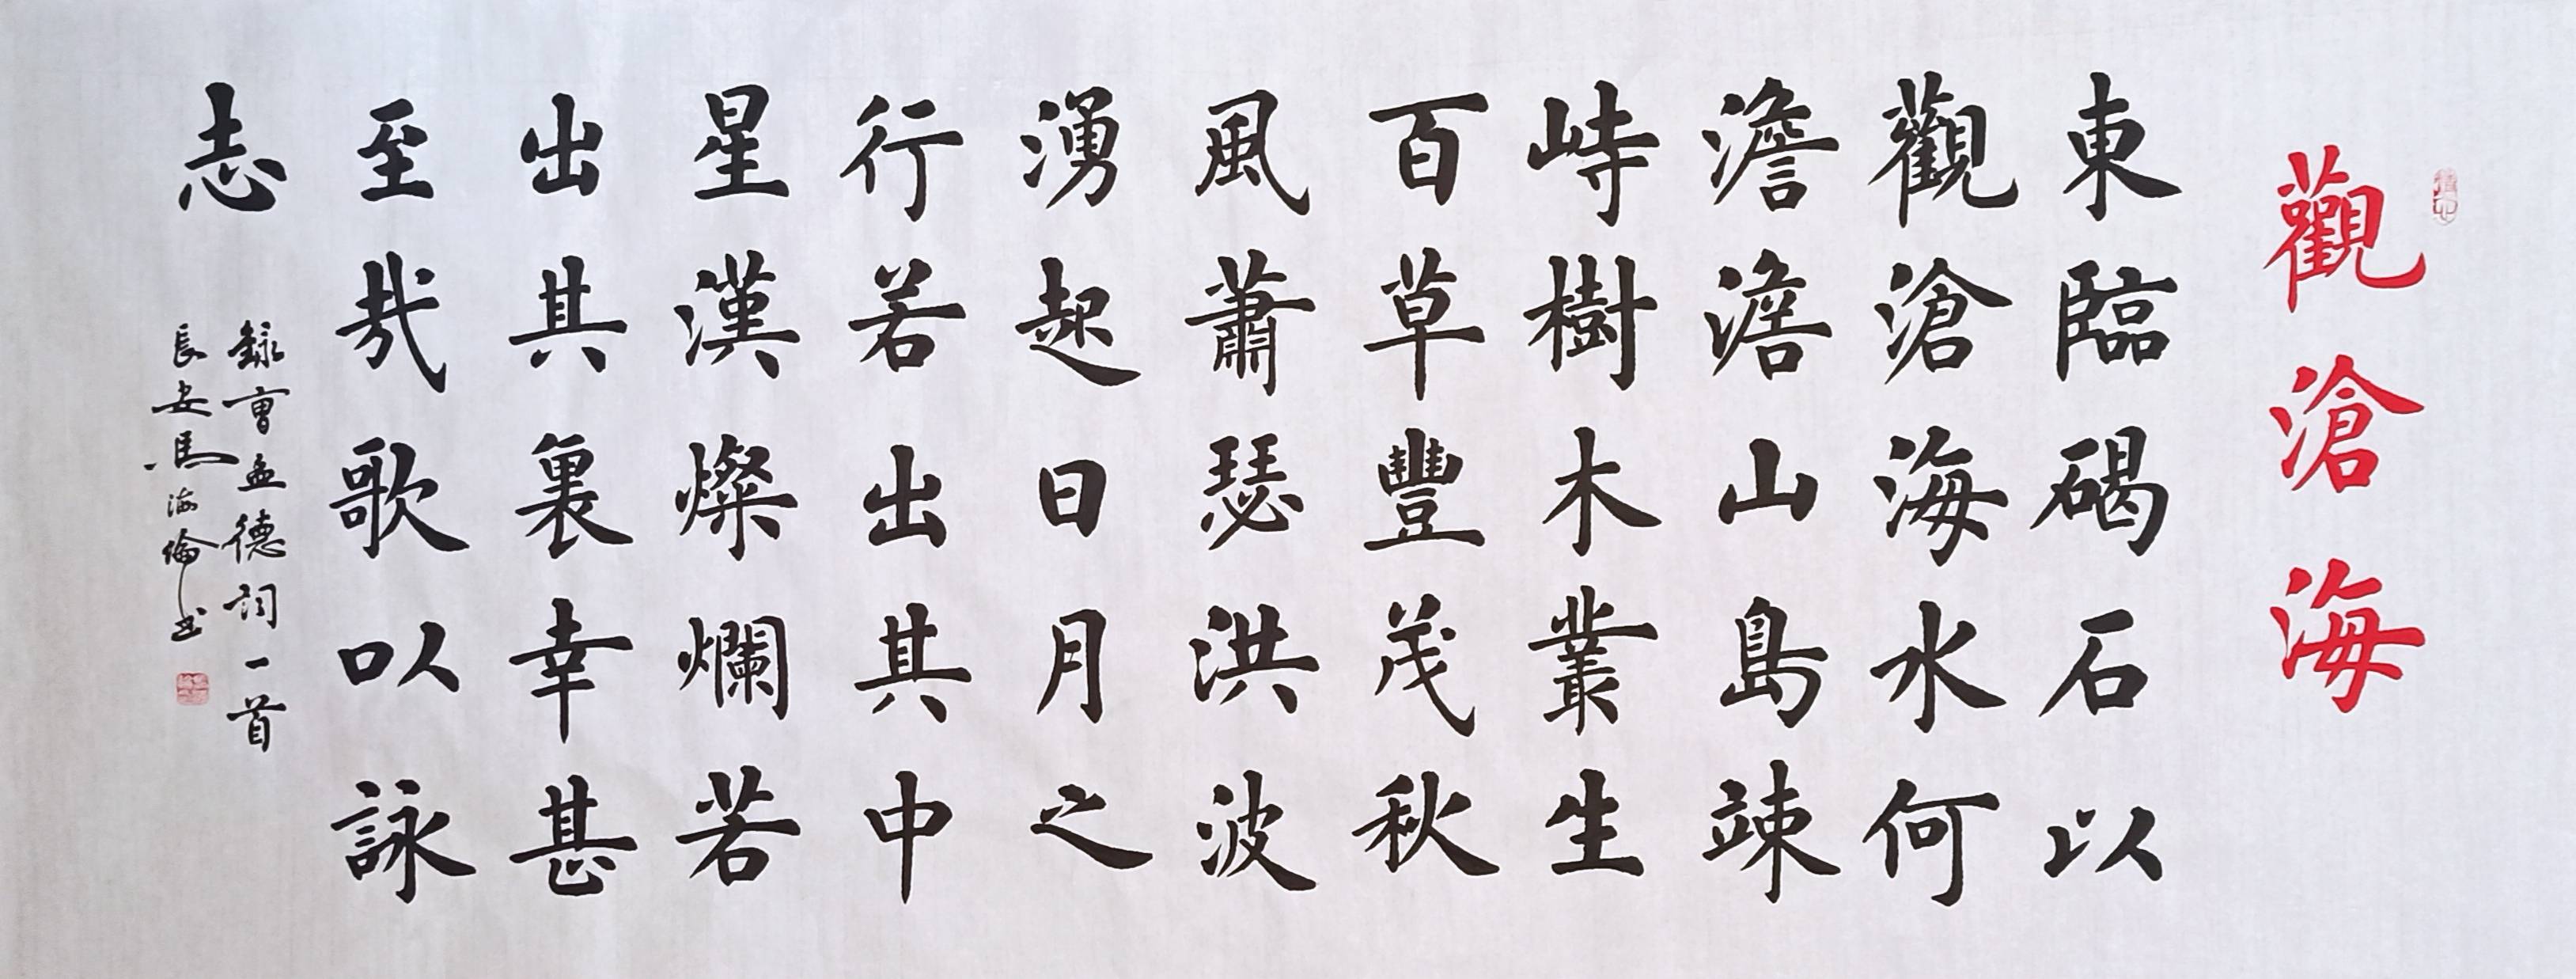 觀滄海
東臨碣石以
觀滄海水何
澹澹山島竦
峙樹木叢生
百草豐茂秋
風蕭瑟洪波
湧起日月之
行若出其中
星漢燦爛若
出其裏幸甚
至哉歌以詠
志
錄曹孟德詞一首
長安馬海倫书